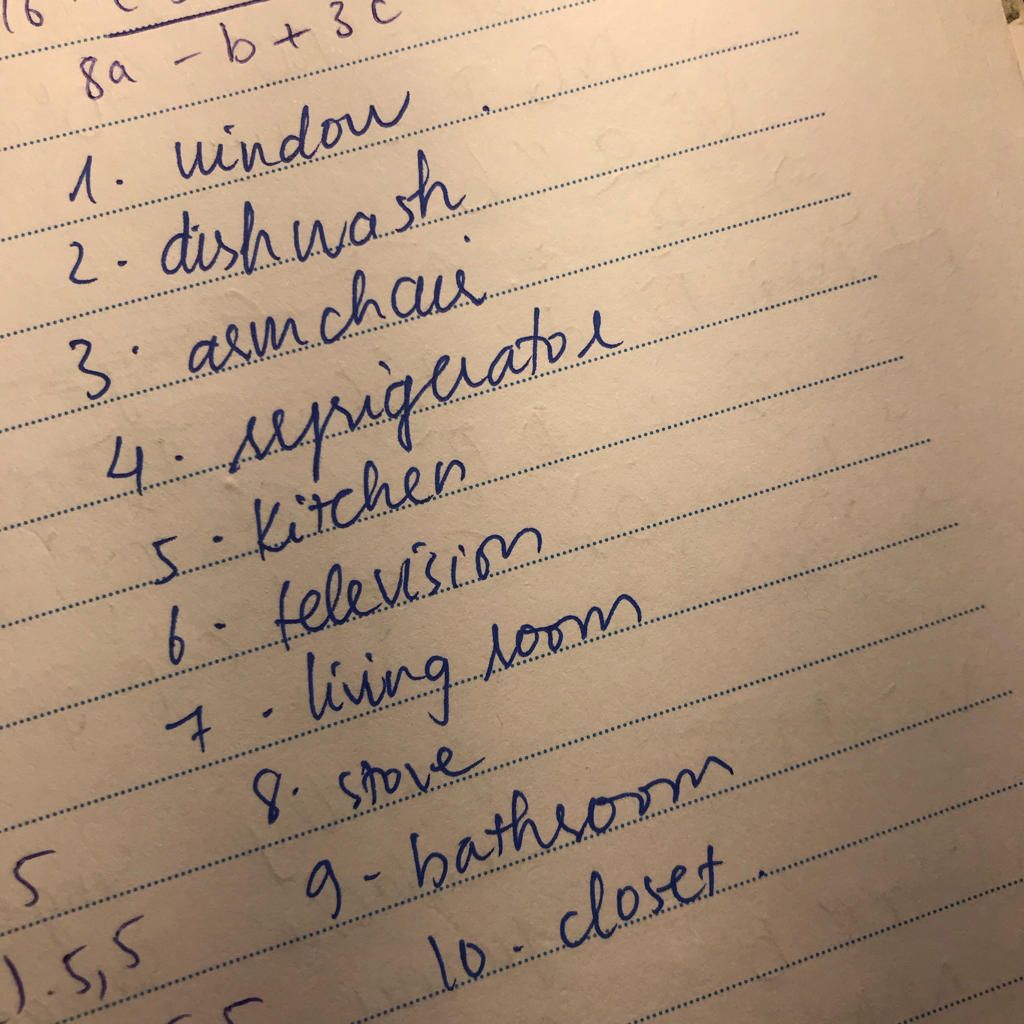 16
8a - b + 3c
1. window
2. dishwash
3. armchair
4. refrigerator
5. Kitchen
6. television
7. living room
8. stove
9 - bathroom
10. closet.
5
). 5,5